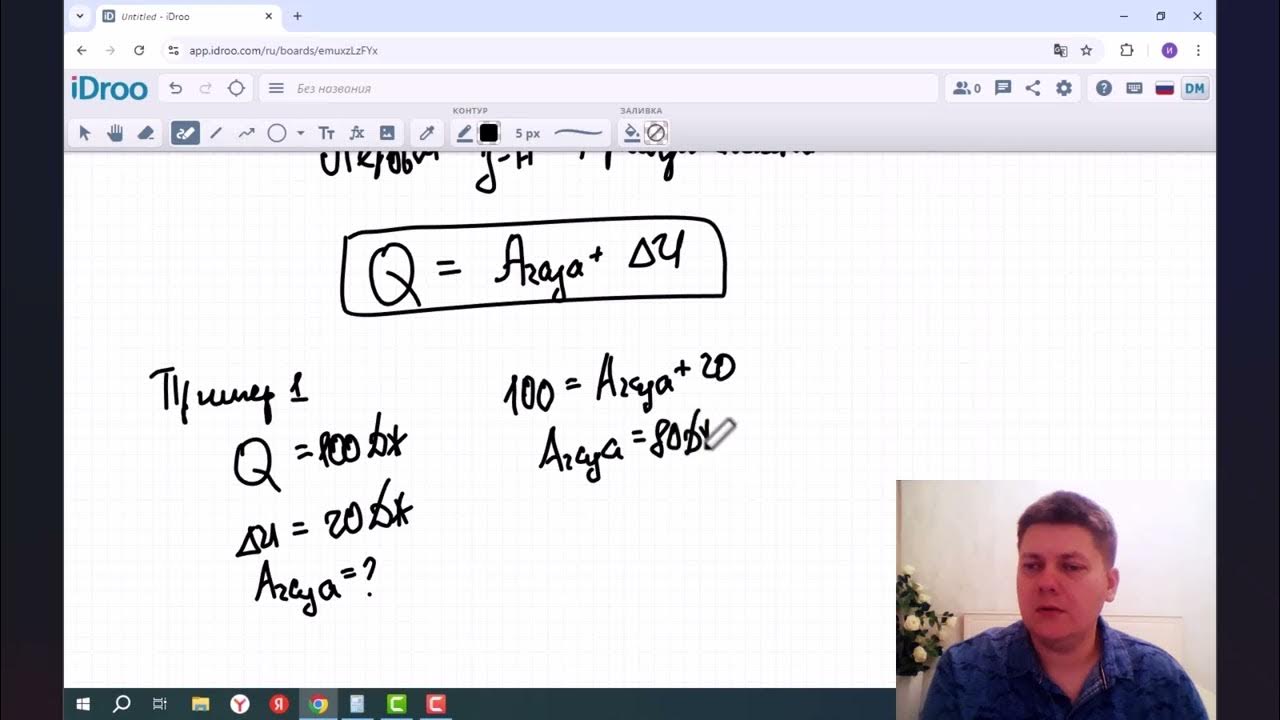 Untitled - iDroo
app.idroo.com/ru/boards/emuxzLzFYx
iDroo
Без названия
0
DM
КОНТУР
ЗАЛИВКА
Tт
fx
5 px
Q = Aгаза + ΔU
Пример 1
Q = 100 Дж
ΔU = 20 Дж
Aгаза = ?
100 = Aгаза + 20
Aгаза = 80 Дж